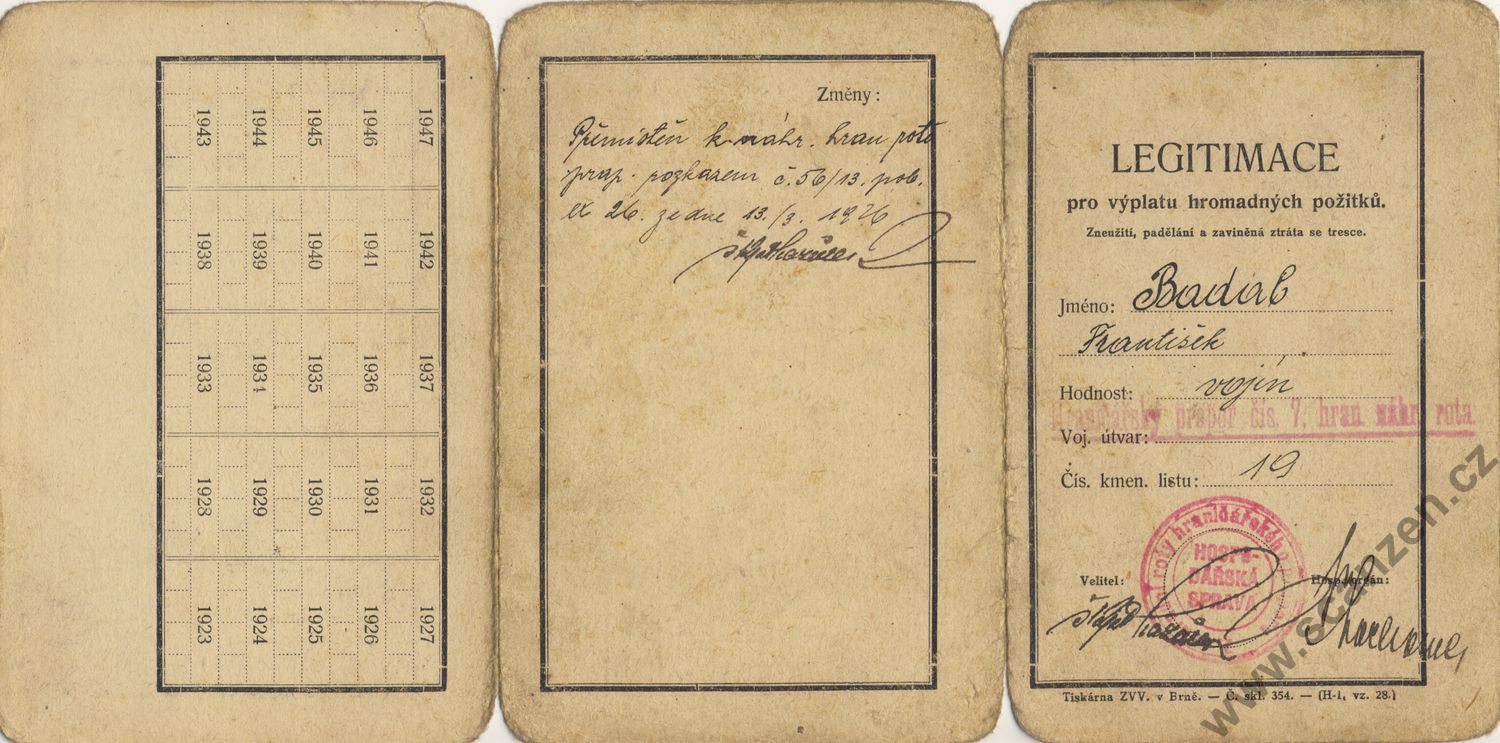 1943 1944 1945 1946 1947
1938 1939 1940 1941 1942
1933 1934 1935 1936 1937
1928 1929 1930 1931 1932
1923 1924 1925 1926 1927
Změny:
Přemístěn k náhr. hran rotě
prap. rozkazem č. 56/13. pob.
ex 26. ze dne 13./3. 1926
škpt
LEGITIMACE
pro výplatu hromadných požitků.
Zneužití, padělání a zaviněná ztráta se tresce.
Jméno: Badal
František
Hodnost: vojín
Hraničářský prapor čís. 7, hran náhr. rota
Voj. útvar:
Čís. kmen. listu: 19
roty hraničářského
HOSPO-
DÁŘSKÁ
SPRÁVA
Velitel: Hosp. orgán:
škpt
Tiskárna ZVV. v Brně. — Č. skl. 354. — (H-1, vz. 28.)
www.scanzen.cz